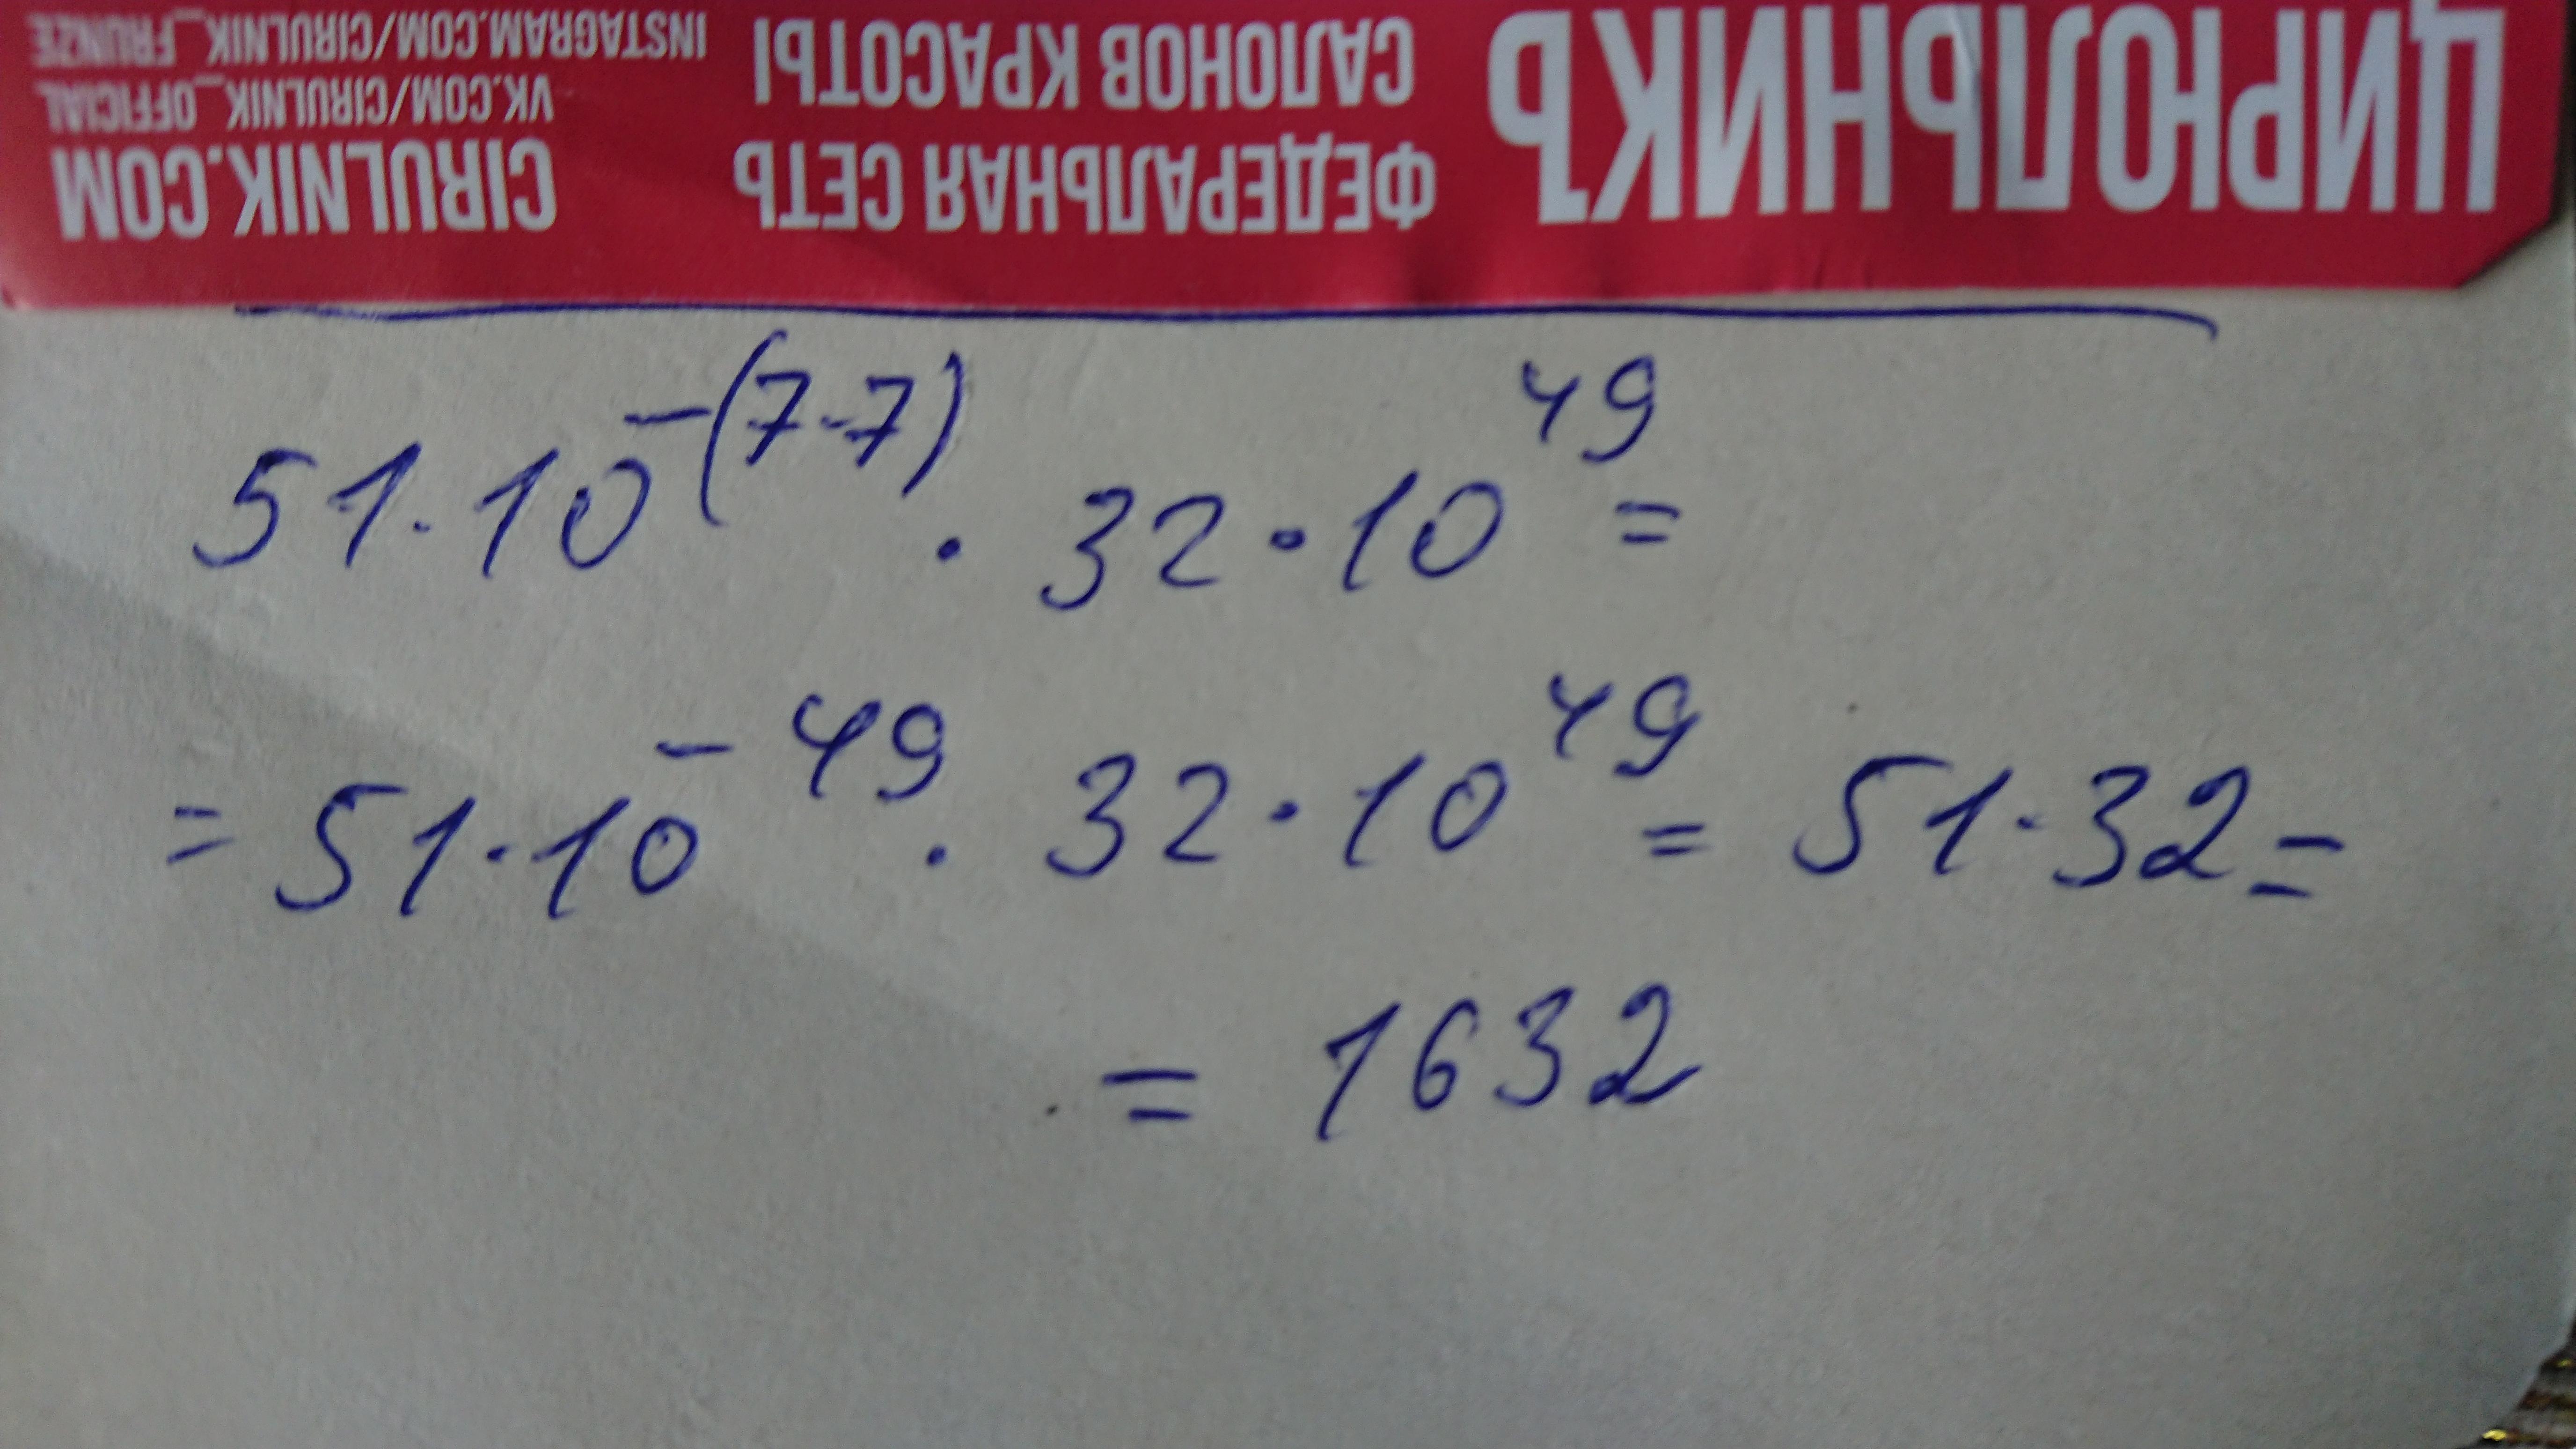 ЦИРЮЛЬНИКЪ
ФЕДЕРАЛЬНАЯ СЕТЬ
САЛОНОВ КРАСОТЫ
CIRULNIK.COM
VK.COM/CIRULNIK_OFFICIAL
INSTAGRAM.COM/CIRULNIK_FRUNZE
51·10^-(7-7) · 32·10^49 =
= 51·10^-49 · 32·10^49 = 51·32 =
= 1632